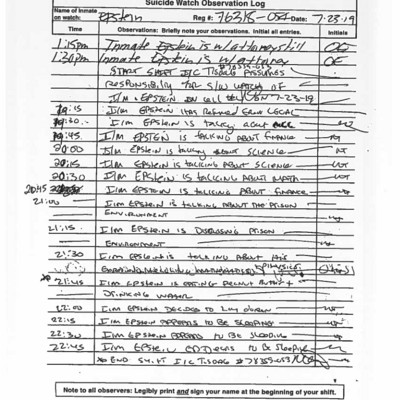 Suicide Watch Observation Log
Name of Inmate on watch: Epstein Reg #: 76318-054 Date: 7-23-19
Time Observations: Briefly note your observations. Initial all entries. Initials
1:15pm Inmate Epstein is w/ attorney still
1:30pm Inmate Epstein is w/ attorney
START SHIFT I/C TISDRG ASSUMES
RESPONSIBILITY FOR S/W WATCH OF
I/M EPSTEIN ON 7-23-19
I/M EPSTEIN HAS RETURNED FROM LEGAL
I/M EPSTEIN IS TALKING ABOUT
19:45 I/M EPSTEIN IS TALKING ABOUT FINANCE
20:00 I/M EPSTEIN IS TALKING ABOUT SCIENCE
20:15 I/M EPSTEIN IS TALKING ABOUT SCIENCE
20:30 I/M EPSTEIN IS TALKING ABOUT MATH
20:45 I/M EPSTEIN IS TALKING ABOUT FINANCE
21:00 I/M EPSTEIN IS TALKING ABOUT THE PRISON
ENVIRONMENT
21:15 I/M EPSTEIN IS DISCUSSING PRISON
ENVIRONMENT
21:30 I/M EPSTEIN IS TALKING ABOUT HIS
21:45 I/M EPSTEIN IS EATING PEANUT BUTTER +
DRINKING WATER
22:00 I/M EPSTEIN DECIDES TO LAY DOWN
22:15 I/M EPSTEIN APPEARS TO BE SLEEPING
22:30 I/M EPSTEIN APPEARS TO BE SLEEPING
22:45 I/M EPSTEIN APPEARS TO BE SLEEPING
* END SHIFT I/C TISDRG
Note to all observers: Legibly print and sign your name at the beginning of your shift.